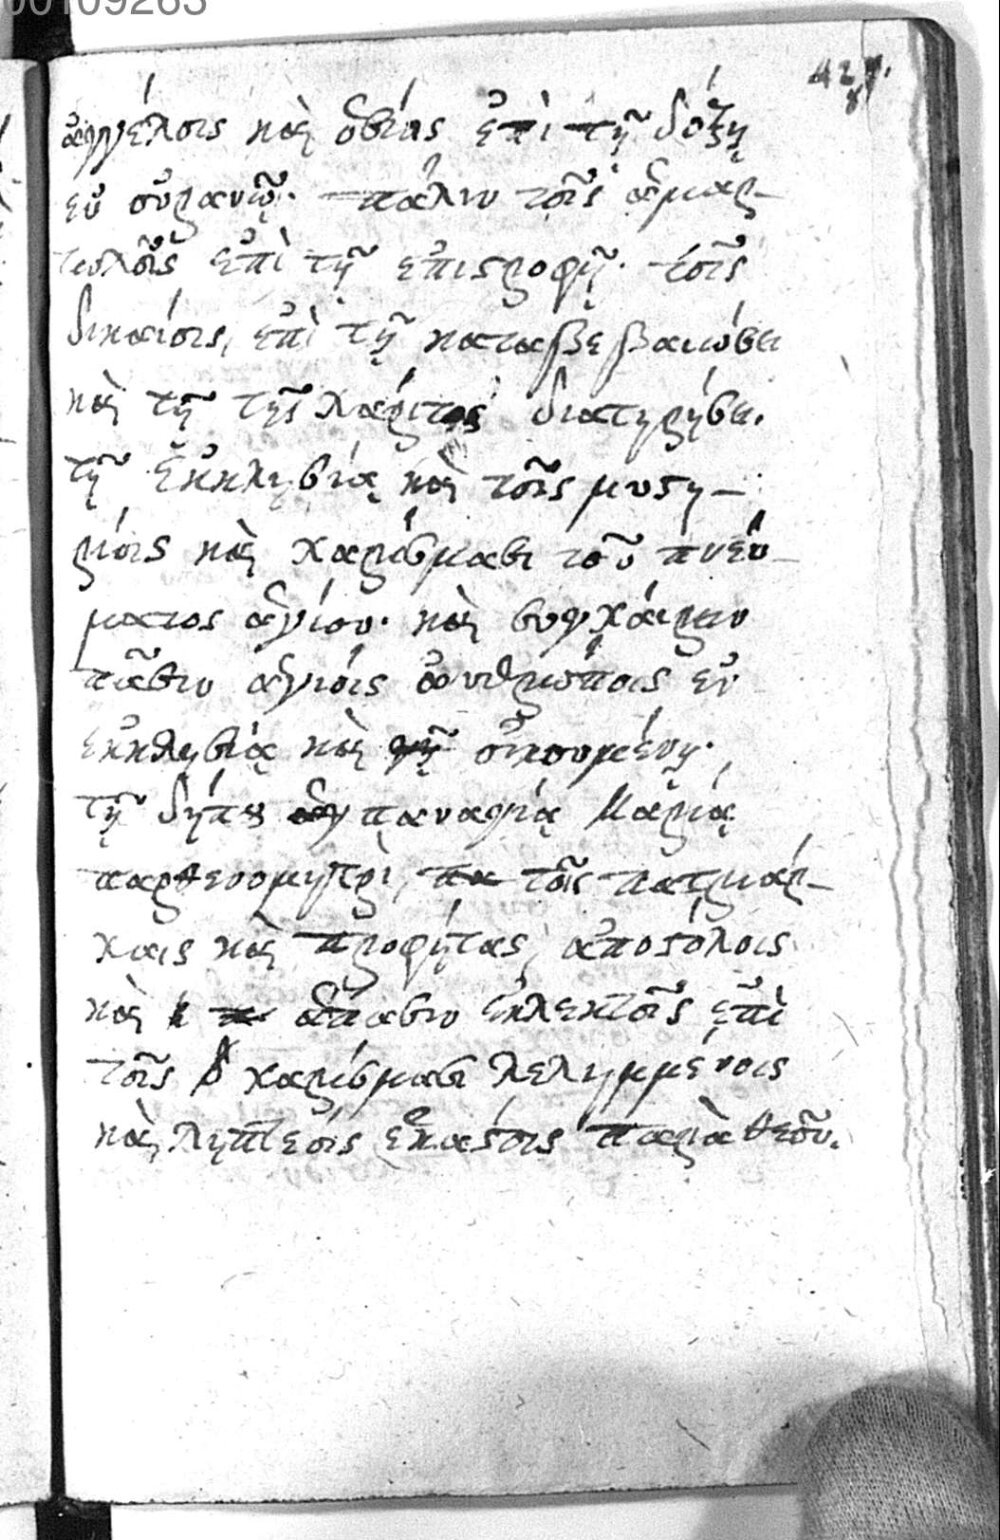 00109263
ἀγγέλοις καὶ ὁσίοις ἐπὶ τῇ δόξῃ
ἐν οὐρανῷ. πάλιν τοῖς ἁμαρ-
τωλοῖς ἐπὶ τῇ ἐπιστροφῇ. τοῖς
δικαίοις, ἐπὶ τῇ καταβεβαιώσει
καὶ τῇ τῆς χάριτος διατηρήσει.
τῇ ἐκκλησίᾳ καὶ τοῖς μυστη-
ρίοις καὶ χαρίσμασι τοῦ πνεύ-
ματος ἁγίου. καὶ συγχάιρειν
πᾶσιν ἁγίοις ἀνθρώποις ἐν
ἐκκλησίᾳ καὶ οἰκουμένῃ.
τῇ δήπου παναγίᾳ Μαρίᾳ
παρθενομητρὶ, τοῖς πατριάρ-
χαις καὶ προφήταις, ἀποστόλοις
καὶ ἅπασιν ἐκλεκτοῖς ἐπὶ
τοῖς χαρίσμασι λελημμένοις
καὶ ληπτέοις ἑκάστοις παρὰ θεοῦ.